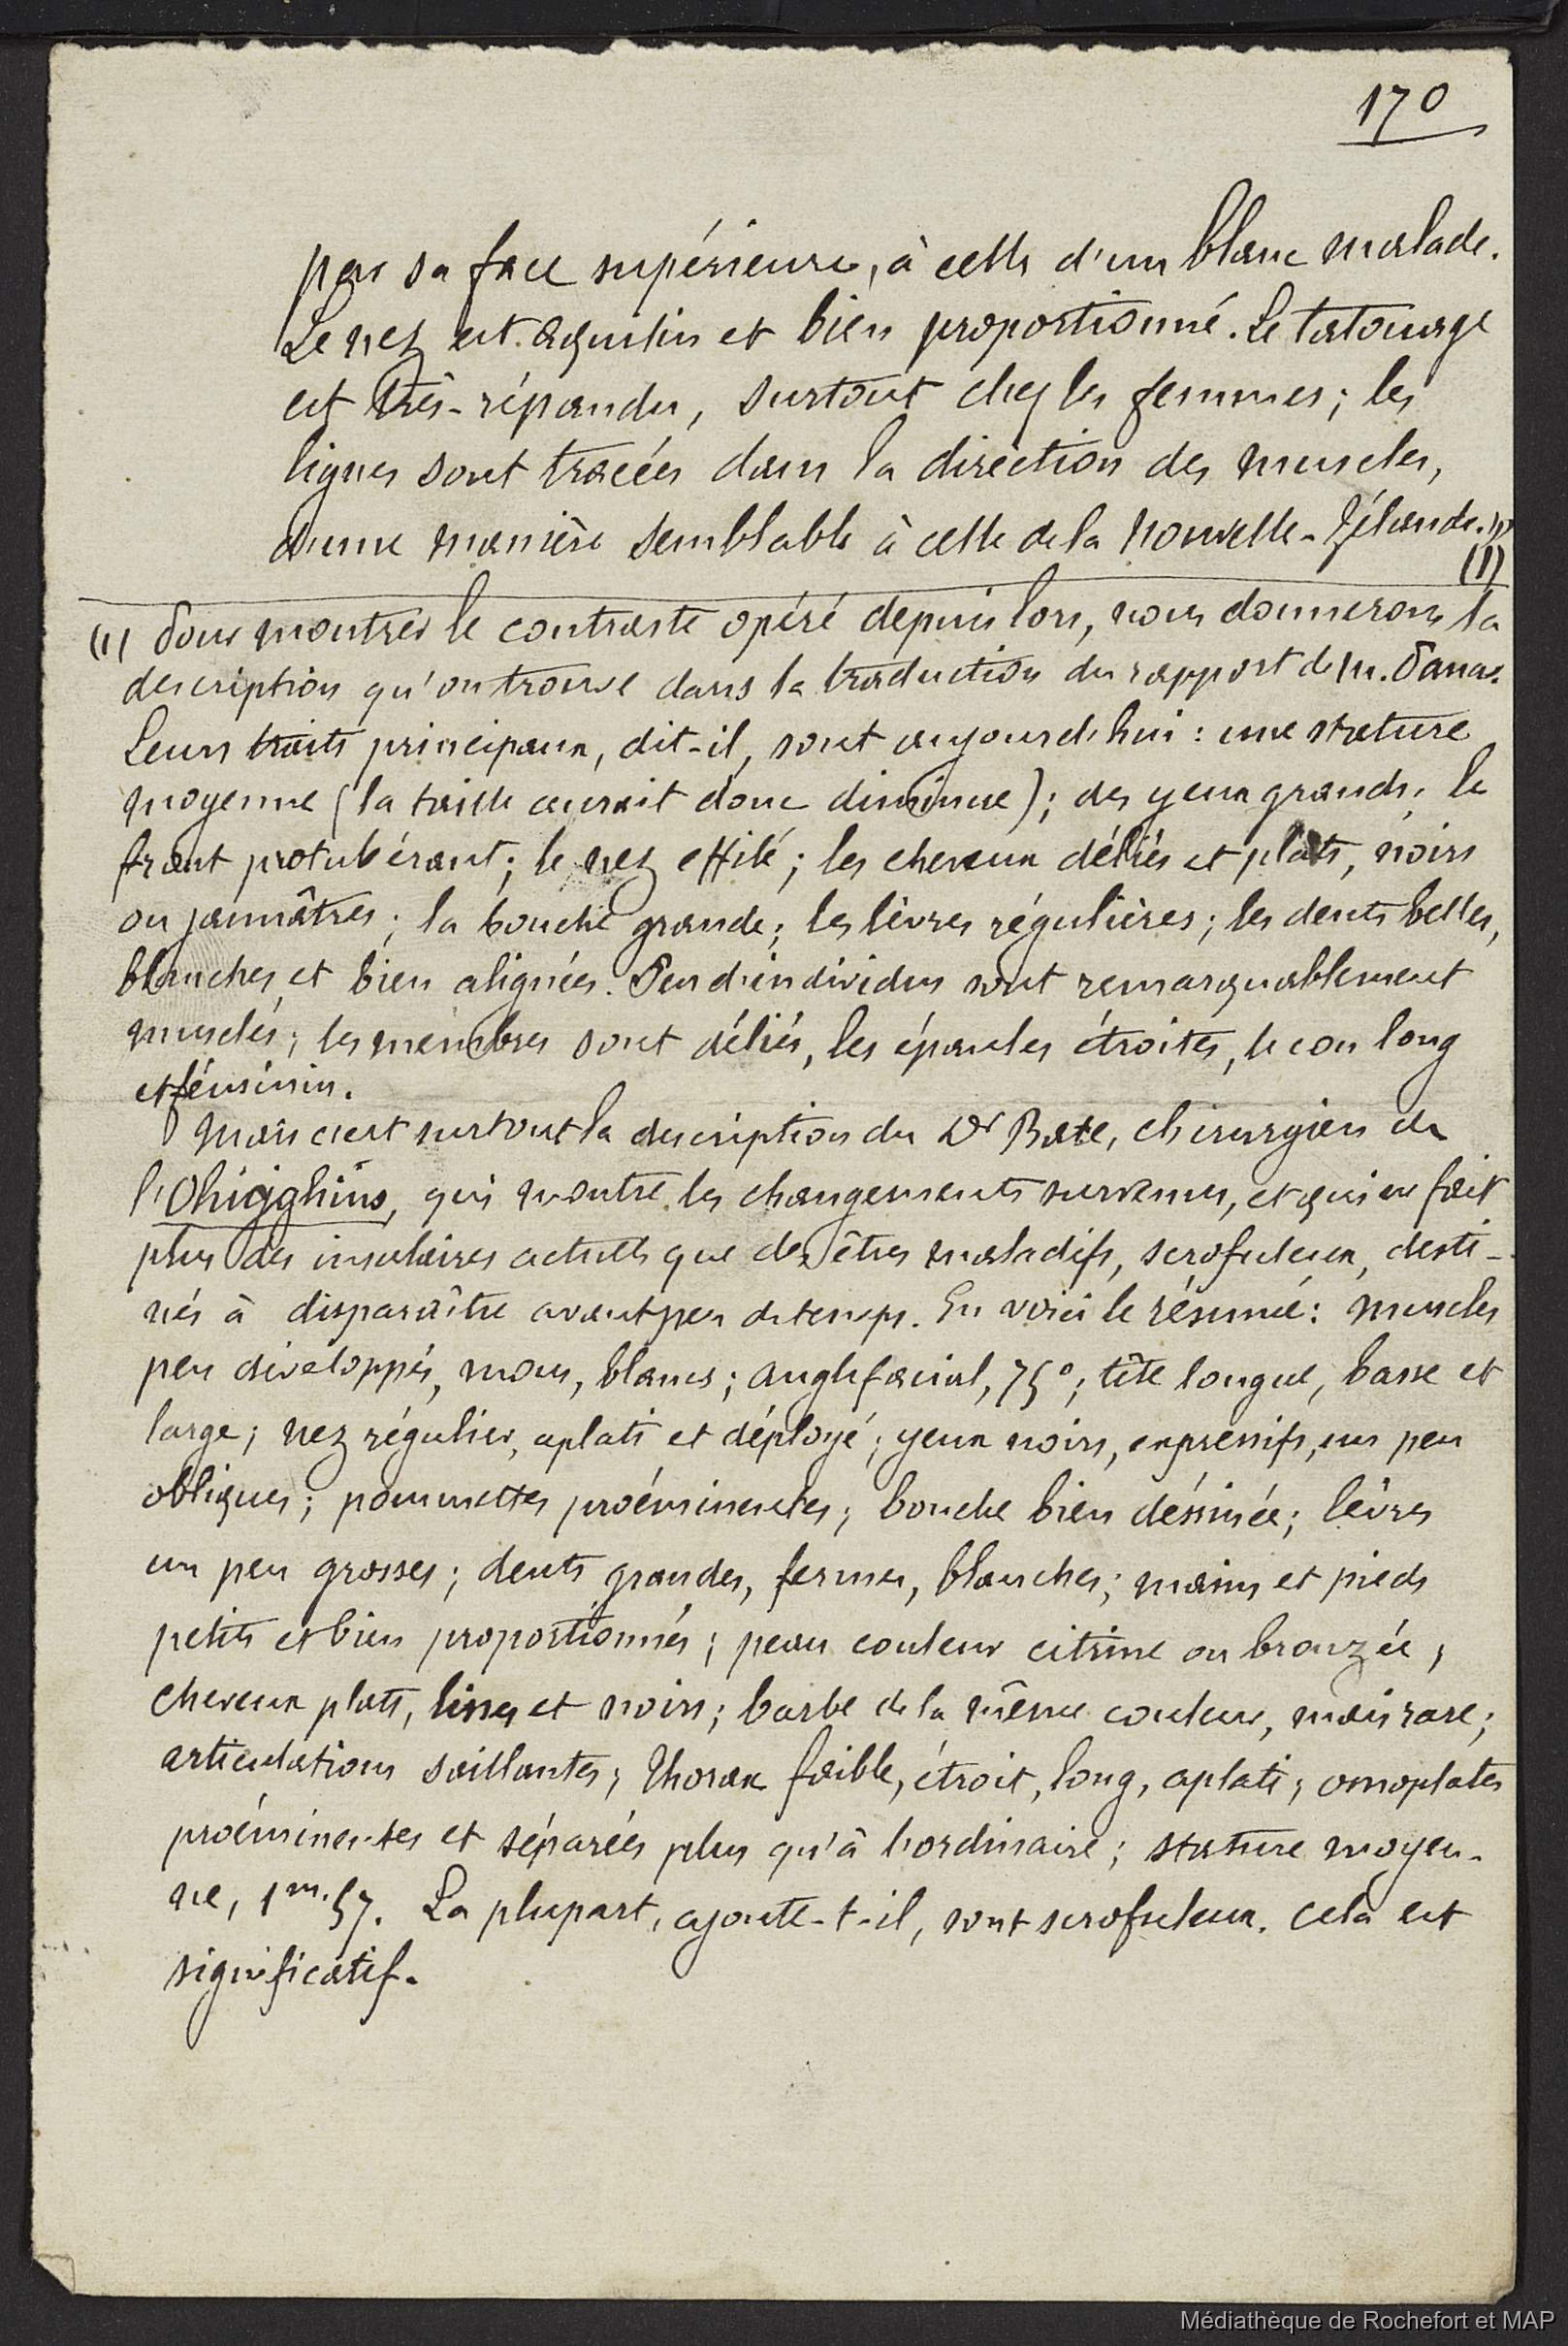 170
par sa face supérieure, à celle d'un blanc malade.
Le nez est aquilin et bien proportionné. Le tatouage
est très-répandu, surtout chez les femmes; les
lignes sont tracées dans la direction des muscles,
d'une manière semblable à celle de la Nouvelle-Zélande."
(1)
(1) Pour montrer le contraste opéré depuis lors, nous donnerons la
description qu'on trouve dans la traduction du rapport de M. Pana.
Leurs traits principaux, dit-il, sont aujourd'hui: une stature
moyenne (la taille aurait donc diminué); des yeux grands; le
front protubérant; le nez effilé; les cheveux déliés et plats, noirs
ou jaunâtres; la bouche grande; les lèvres régulières; les dents belles,
blanches, et bien alignées. Peu d'individus sont remarquablement
musclés; les membres sont déliés, les épaules étroites, le cou long
et féminin.
Mais c'est surtout la description du Dr Bate, chirurgien de
l'Ohigghins, qui montre les changements survenus, et qui ne fait
plus des insulaires actuels que des êtres maladifs, scrofuleux, desti-
nés à disparaître avant peu de temps. En voici le résumé: muscles
peu développés, mous, blancs; angle facial, 75°; tête longue, basse et
large; nez régulier, aplati et déployé; yeux noirs, expressifs, un peu
obliques; pommettes proéminentes; bouche bien déssinée; lèvres
un peu grosses; dents grandes, fermes, blanches; mains et pieds
petits et bien proportionnés; peau couleur citrine ou bronzée;
cheveux plats, lisses et noirs; barbe de la même couleur, mais rare;
articulations saillantes; thorax faible, étroit, long, aplati; omoplates
proéminentes et séparées plus qu'à l'ordinaire; stature moyen-
ne, 1m.57. La plupart, ajoute-t-il, sont scrofuleux. Cela est
significatif.
Médiathèque de Rochefort et MAP